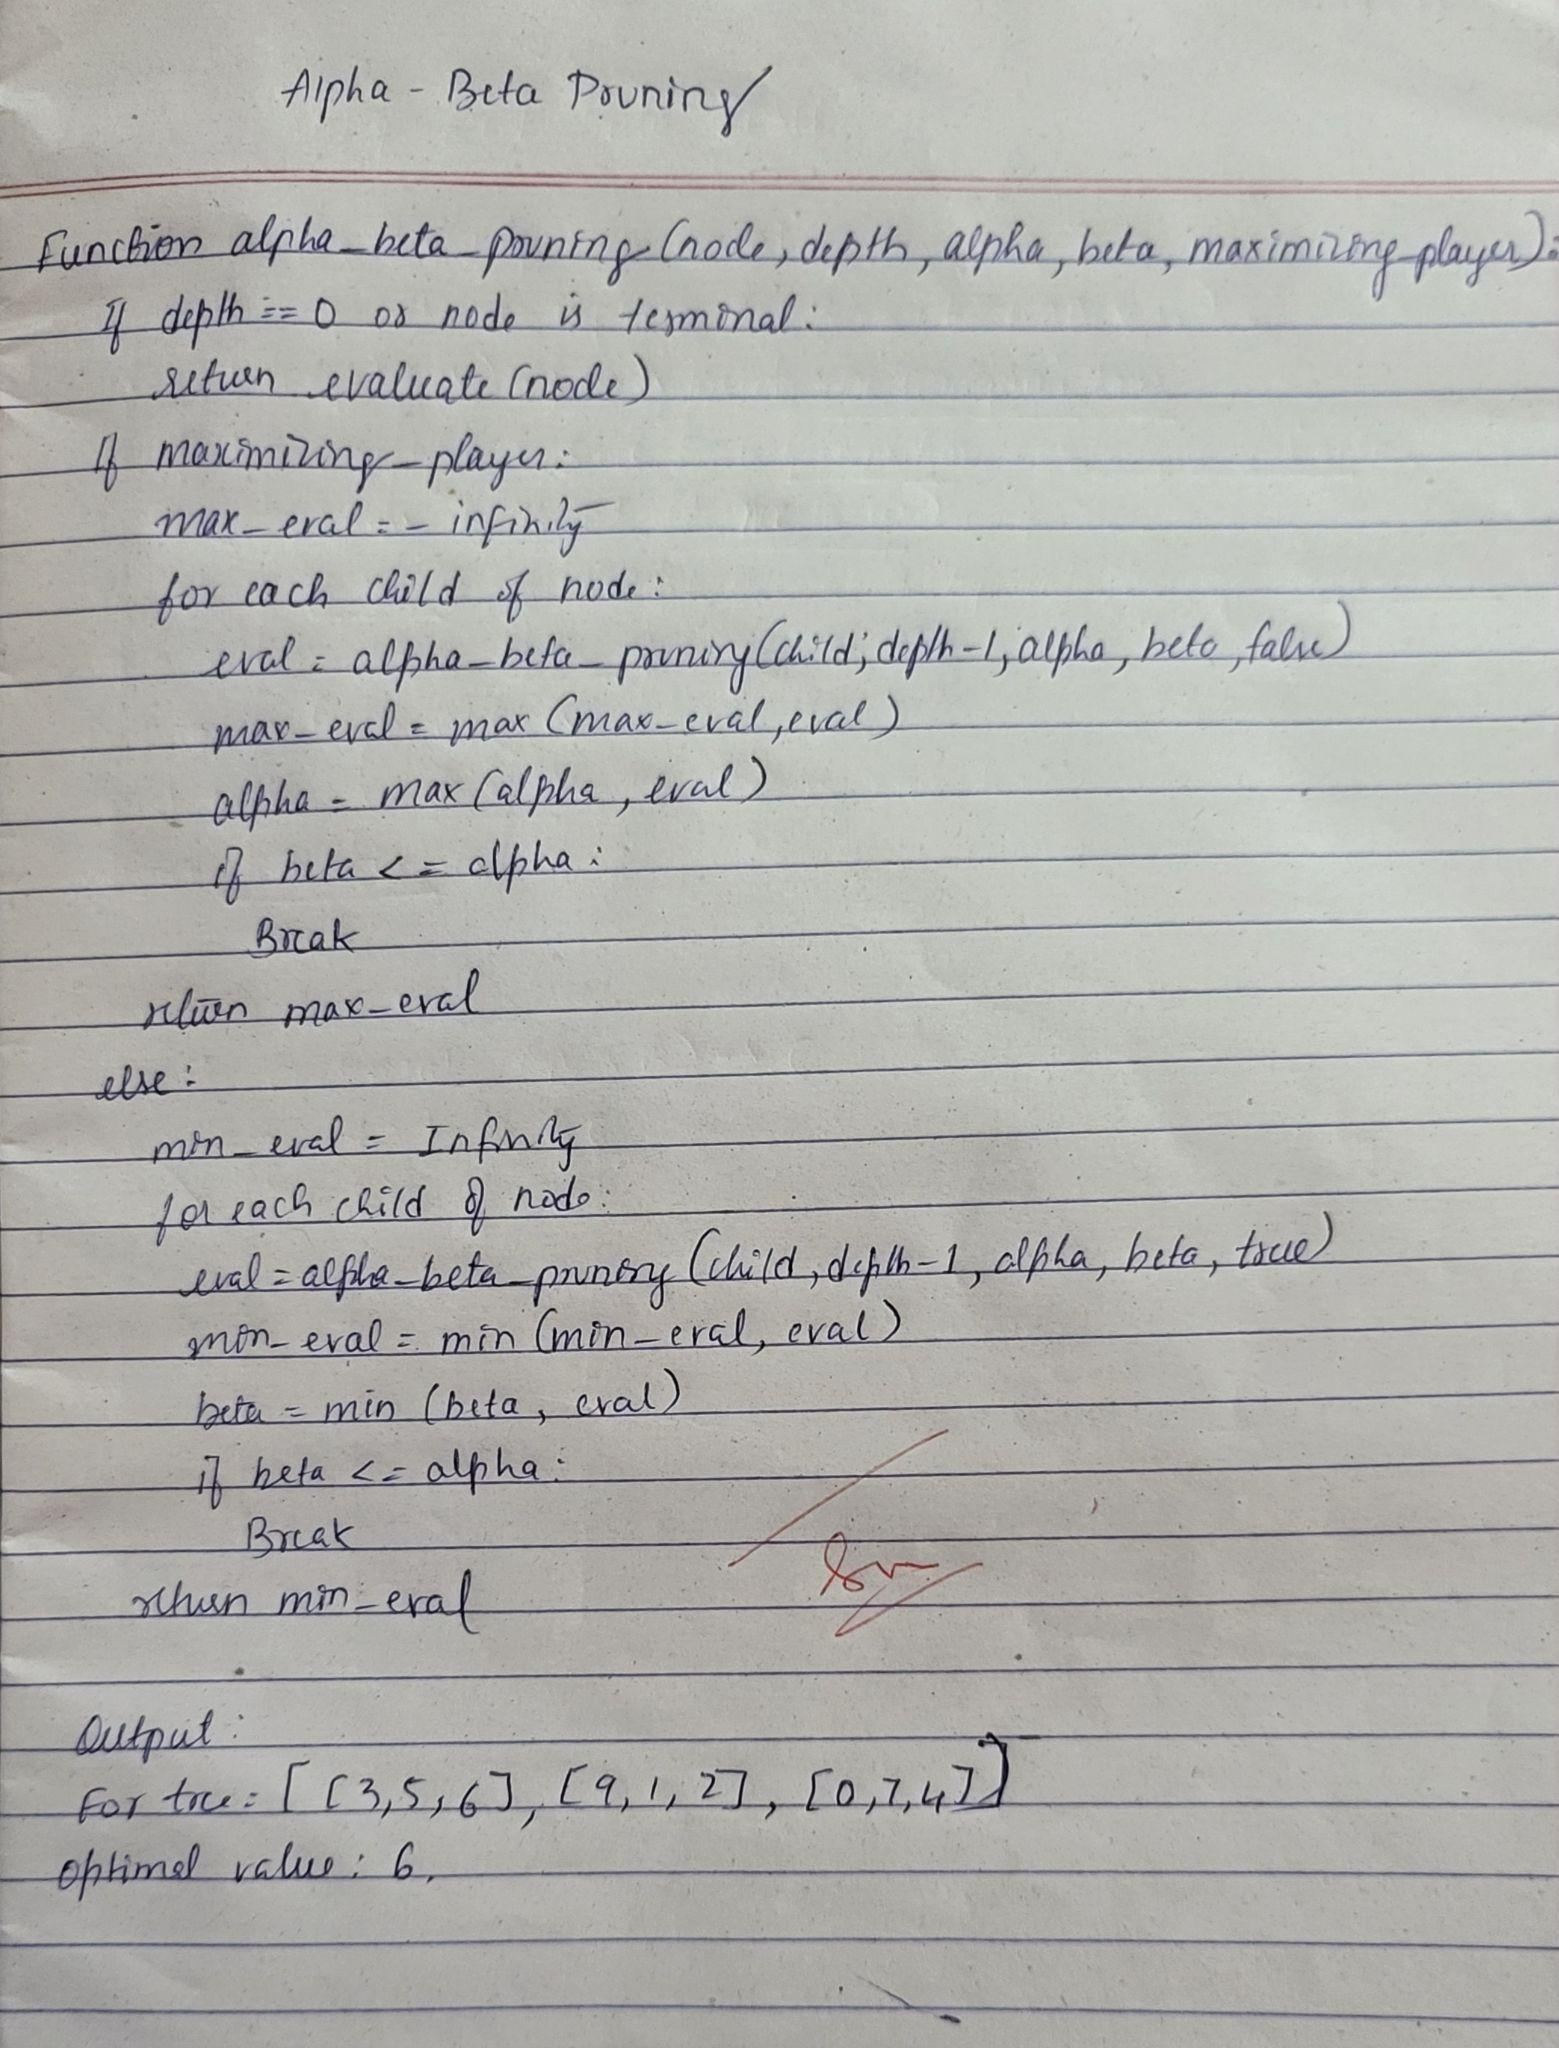 Alpha - Beta Pruning
Function alpha_beta_pruning (node, depth, alpha, beta, maximizing_player):
If depth == 0 or node is terminal:
return evaluate (node)
If maximizing_player:
max_eval = - infinity
for each child of node:
eval = alpha_beta_pruning (child, depth-1, alpha, beta, false)
max_eval = max (max_eval, eval)
alpha = max (alpha, eval)
if beta <= alpha:
Break
return max_eval
else:
min_eval = Infinity
for each child of node:
eval = alpha_beta_pruning (child, depth-1, alpha, beta, true)
min_eval = min (min_eval, eval)
beta = min (beta, eval)
if beta <= alpha:
Break
return min_eval
Output:
For tree: [ [3,5,6], [9,1,2], [0,7,4] ]
Optimal value: 6.